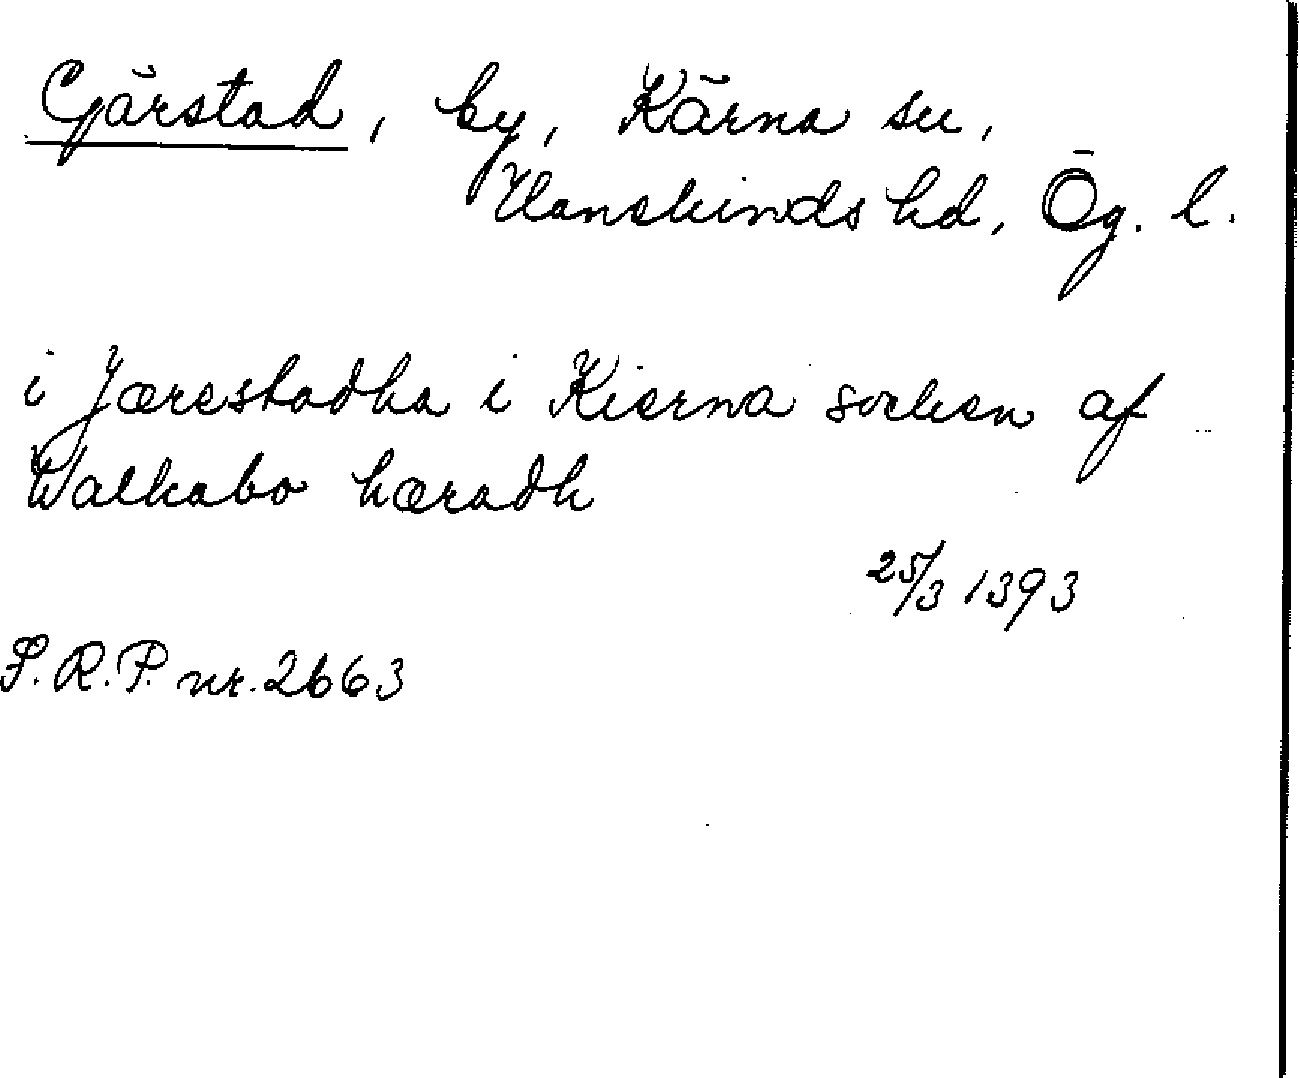 Gärstad, by, Kärna sn,
Hanekinds hd, Ög. l.
i Jærestadha i Kierna sochen af
Walkabo hæradh
25/3 1393
S.R.P. nr. 2663